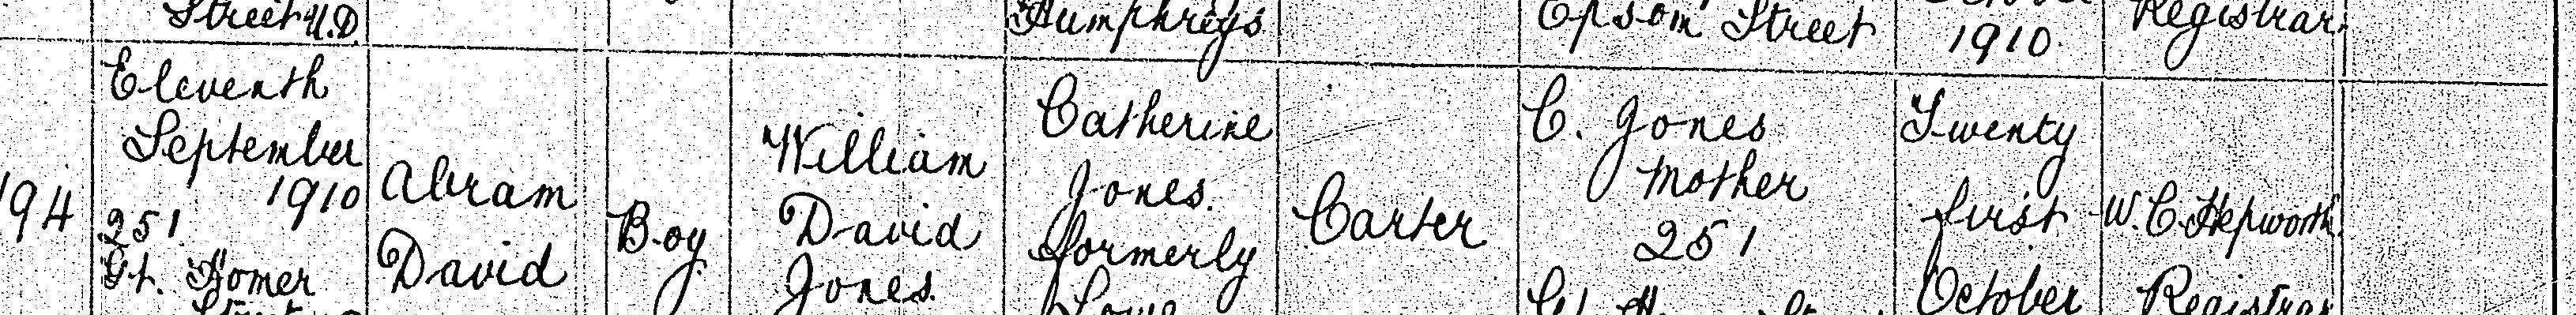 Street U.D.
Humphreys
Epsom Street
1910.
Registrar.
194
Eleventh
September
1910
251
Gt. Homer
Abram
David
Boy
William
David
Jones.
Catherine
Jones.
formerly
Lowe
Carter
C. Jones
Mother
251
Twenty
first
October
W. C. Hepworth.
Registrar